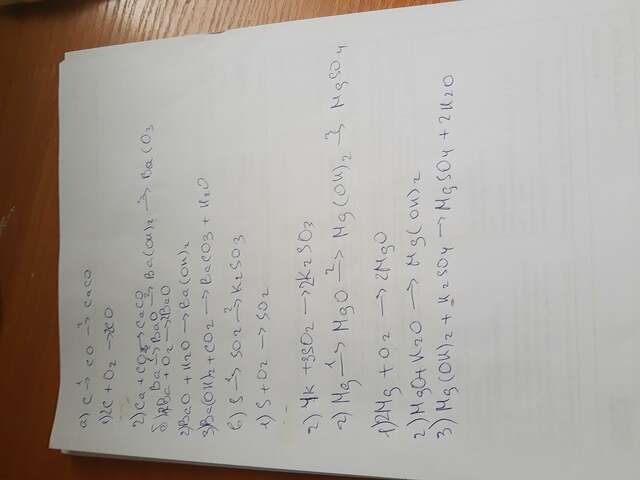 а) C →¹ CO →² CaCO
1) 2C + O2 → 2CO
2) Ca + CO2 → CaCO
б) Ba →¹ BaO →² Ba(OH)2 →³ BaCO3
1) 2Ba + O2 → 2BaO
2) BaO + H2O → Ba(OH)2
3) Ba(OH)2 + CO2 → BaCO3 + H2O
в) S →¹ SO2 →² K2SO3
1) S + O2 → SO2
2) 4K + 3SO2 → 2K2SO3
г) Mg →¹ MgO →² Mg(OH)2 →³ MgSO4
1) 2Mg + O2 → 2MgO
2) MgO + H2O → Mg(OH)2
3) Mg(OH)2 + H2SO4 → MgSO4 + 2H2O